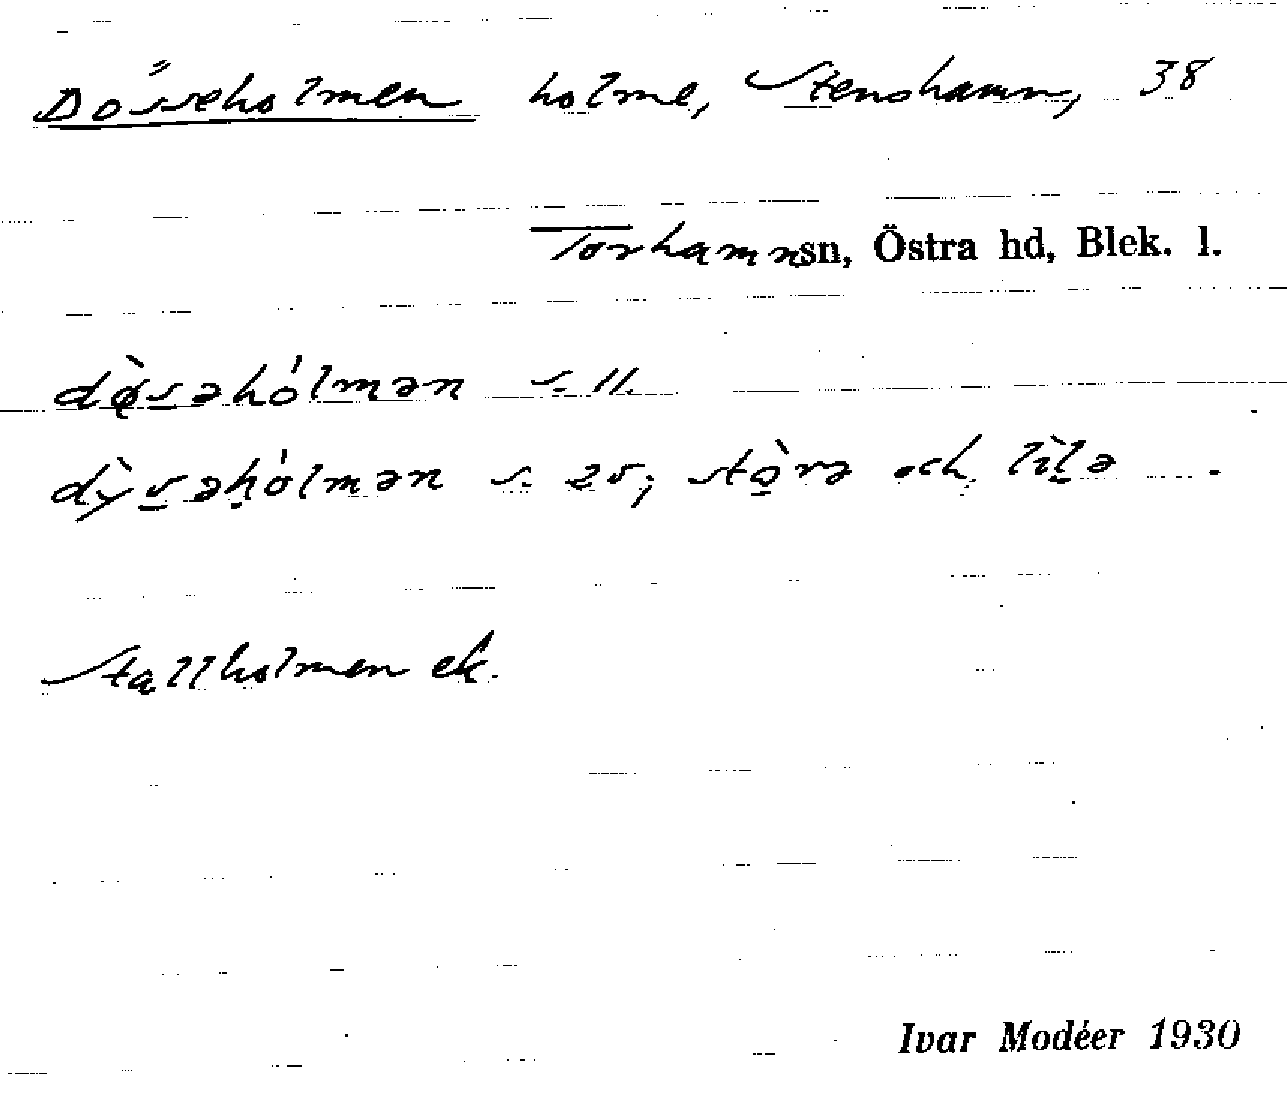 Dösseholmen holme, Stenshamn, 38
Torhamn sn, Östra hd, Blek. l.
dø̀s̲əhólmən s. 11.
dỳs̲əḥólmən s. 25; stò̲rə och lìl̲ə — .
Stallholmen ek.
Ivar Modéer 1930